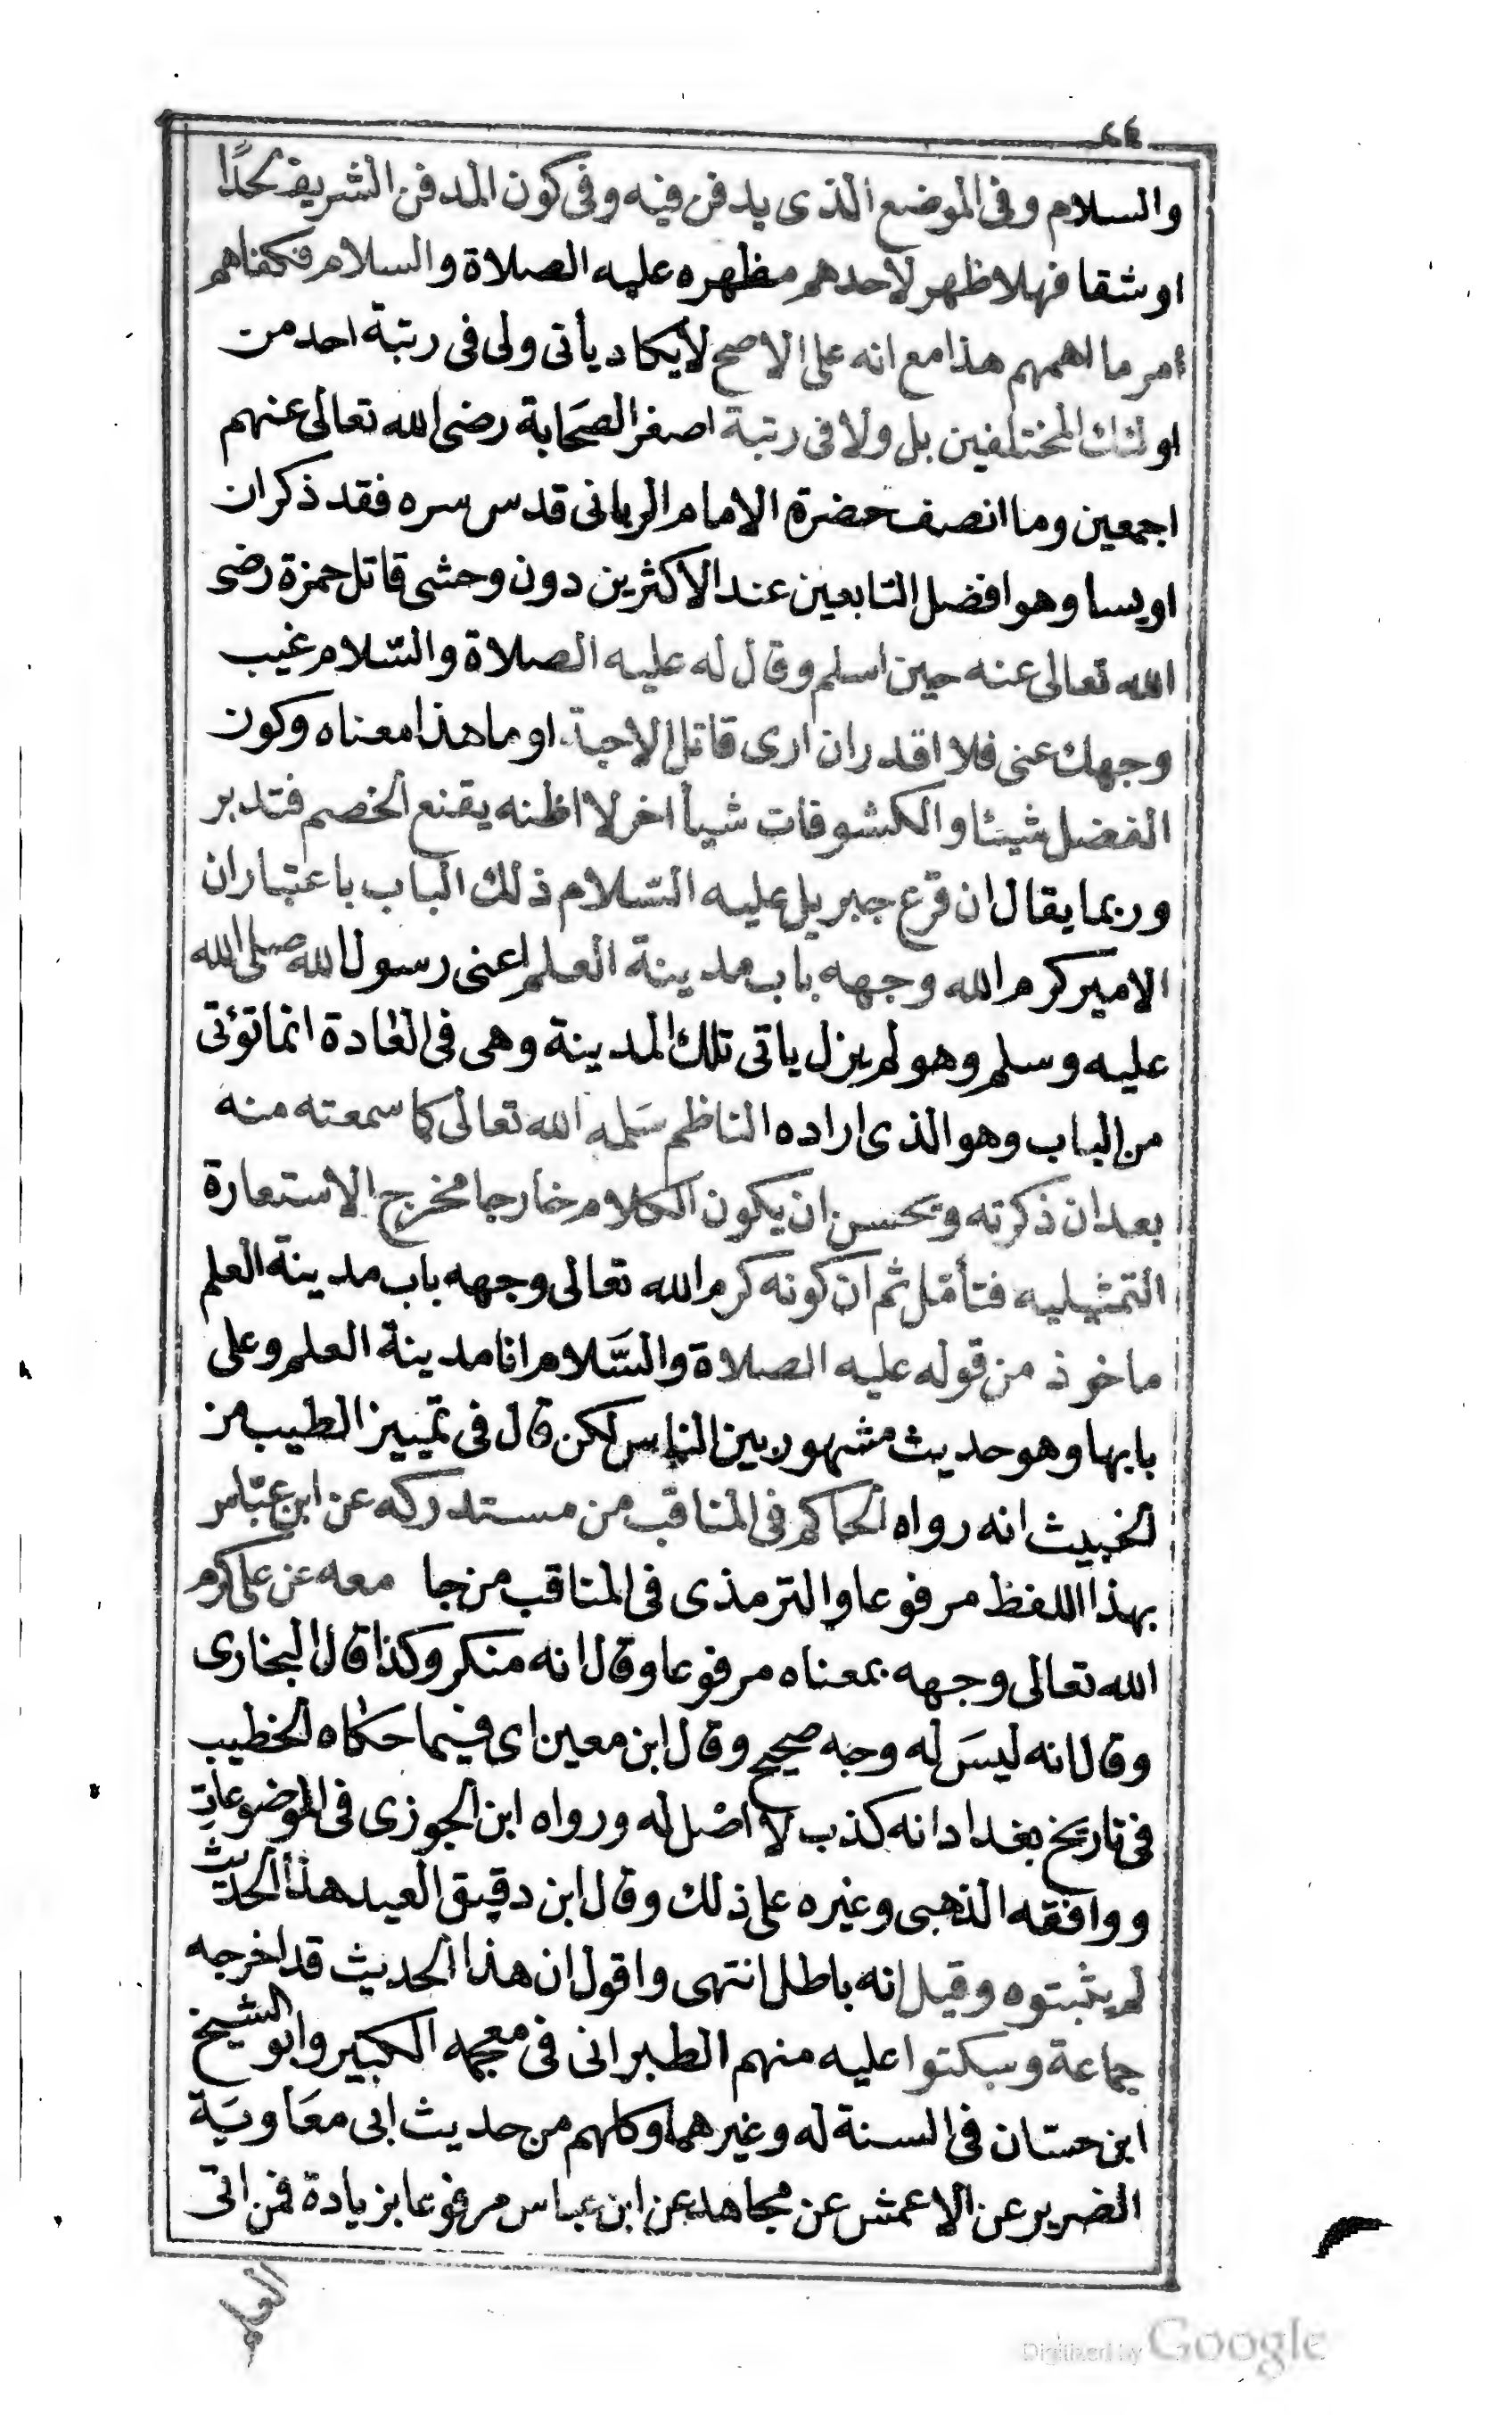 ٤٤
والسلام وفى الموضع الذى يدفن فيه وفى كون المدفن الشريف لحدًا
او شقا فهلا ظهر لأحدهم مظهره عليه الصلاة والسلام فكفاهم
أمر ما اهمهم هذا مع انه على الاصح لأيكاد يأتى ولى فى رتبة احد من
اولئك المختلفين بل ولا فى رتبة اصغر الصحَابة رضى الله تعالى عنهم
اجمعين وما انصف حضرة الامام الربانى قدس سره فقد ذكر ان
اويسا وهو افضل التابعين عند الاكثرين دون وحشى قاتل حمزة رضى
الله تعالى عنه حين اسلم وقال له عليه الصلاة والسّلام غيب
وجهك عنى فلا اقدر ان ارى قاتل الاحبة او ما هذا معناه وكون
الفضل شيئا والكشوفات شيأ اخر لا اظنه يقنع الخصم فتدبر
وربما يقال ان قرع جبريل عليه السّلام ذلك الباب باعتبار ان
الامير كرم الله وجهه باب مدينة العلم اعنى رسول الله صلى الله
عليه وسلم وهو لم يزل ياتى تلك المدينة وهى فى العادة انما تؤتى
من الباب وهو الذى اراده الناظم سَلمه الله تعالى كما سمعته منه
بعد ان ذكرته ويحسن ان يكون الكلام خارجا مخرج الاستعارة
التمثيليه فتأمّل ثم ان كونه كرم الله تعالى وجهه باب مدينة العلم
ماخوذ من قوله عليه الصلاة والسَّلام انا مدينة العلم وعلى
بابها وهو حديث مشهور بين الناس لكن قال فى تمييز الطيب من
الخبيث انه رواه الحاكم فى المناقب من مستدركه عن ابن عبّاس
بهذا اللفظ مرفوعا والترمذى فى المناقب من جا معه عن على كرم
الله تعالى وجهه بمعناه مرفوعا وقال انه منكر وكذا قال البخارى
وقال انه ليسَ له وجه صحيح وقال ابن معين اى فيما حكاه الخطيب
فى تاريخ بغداد انه كذب لا اصْل له ورواه ابن الجوزى فى الموضوعات
ووافقه الذهبى وغيره على ذلك وقال ابن دقيق العيد هذا الحديث
لم يثبتوه وقيل انه باطل انتهى واقول ان هذا الحديث قد اخرجه
جماعة وسكتوا عليه منهم الطبرانى فى معجمه الكبير وابو الشيخ
ابن حسّان فى السنة له وغيرهما وكلهم من حديث ابى معَاويَة
الضرير عن الاعمش عن مجاهد عن ابن عباس مرفوعا بزيادة فمن اتى
العلم
Digitized by Google